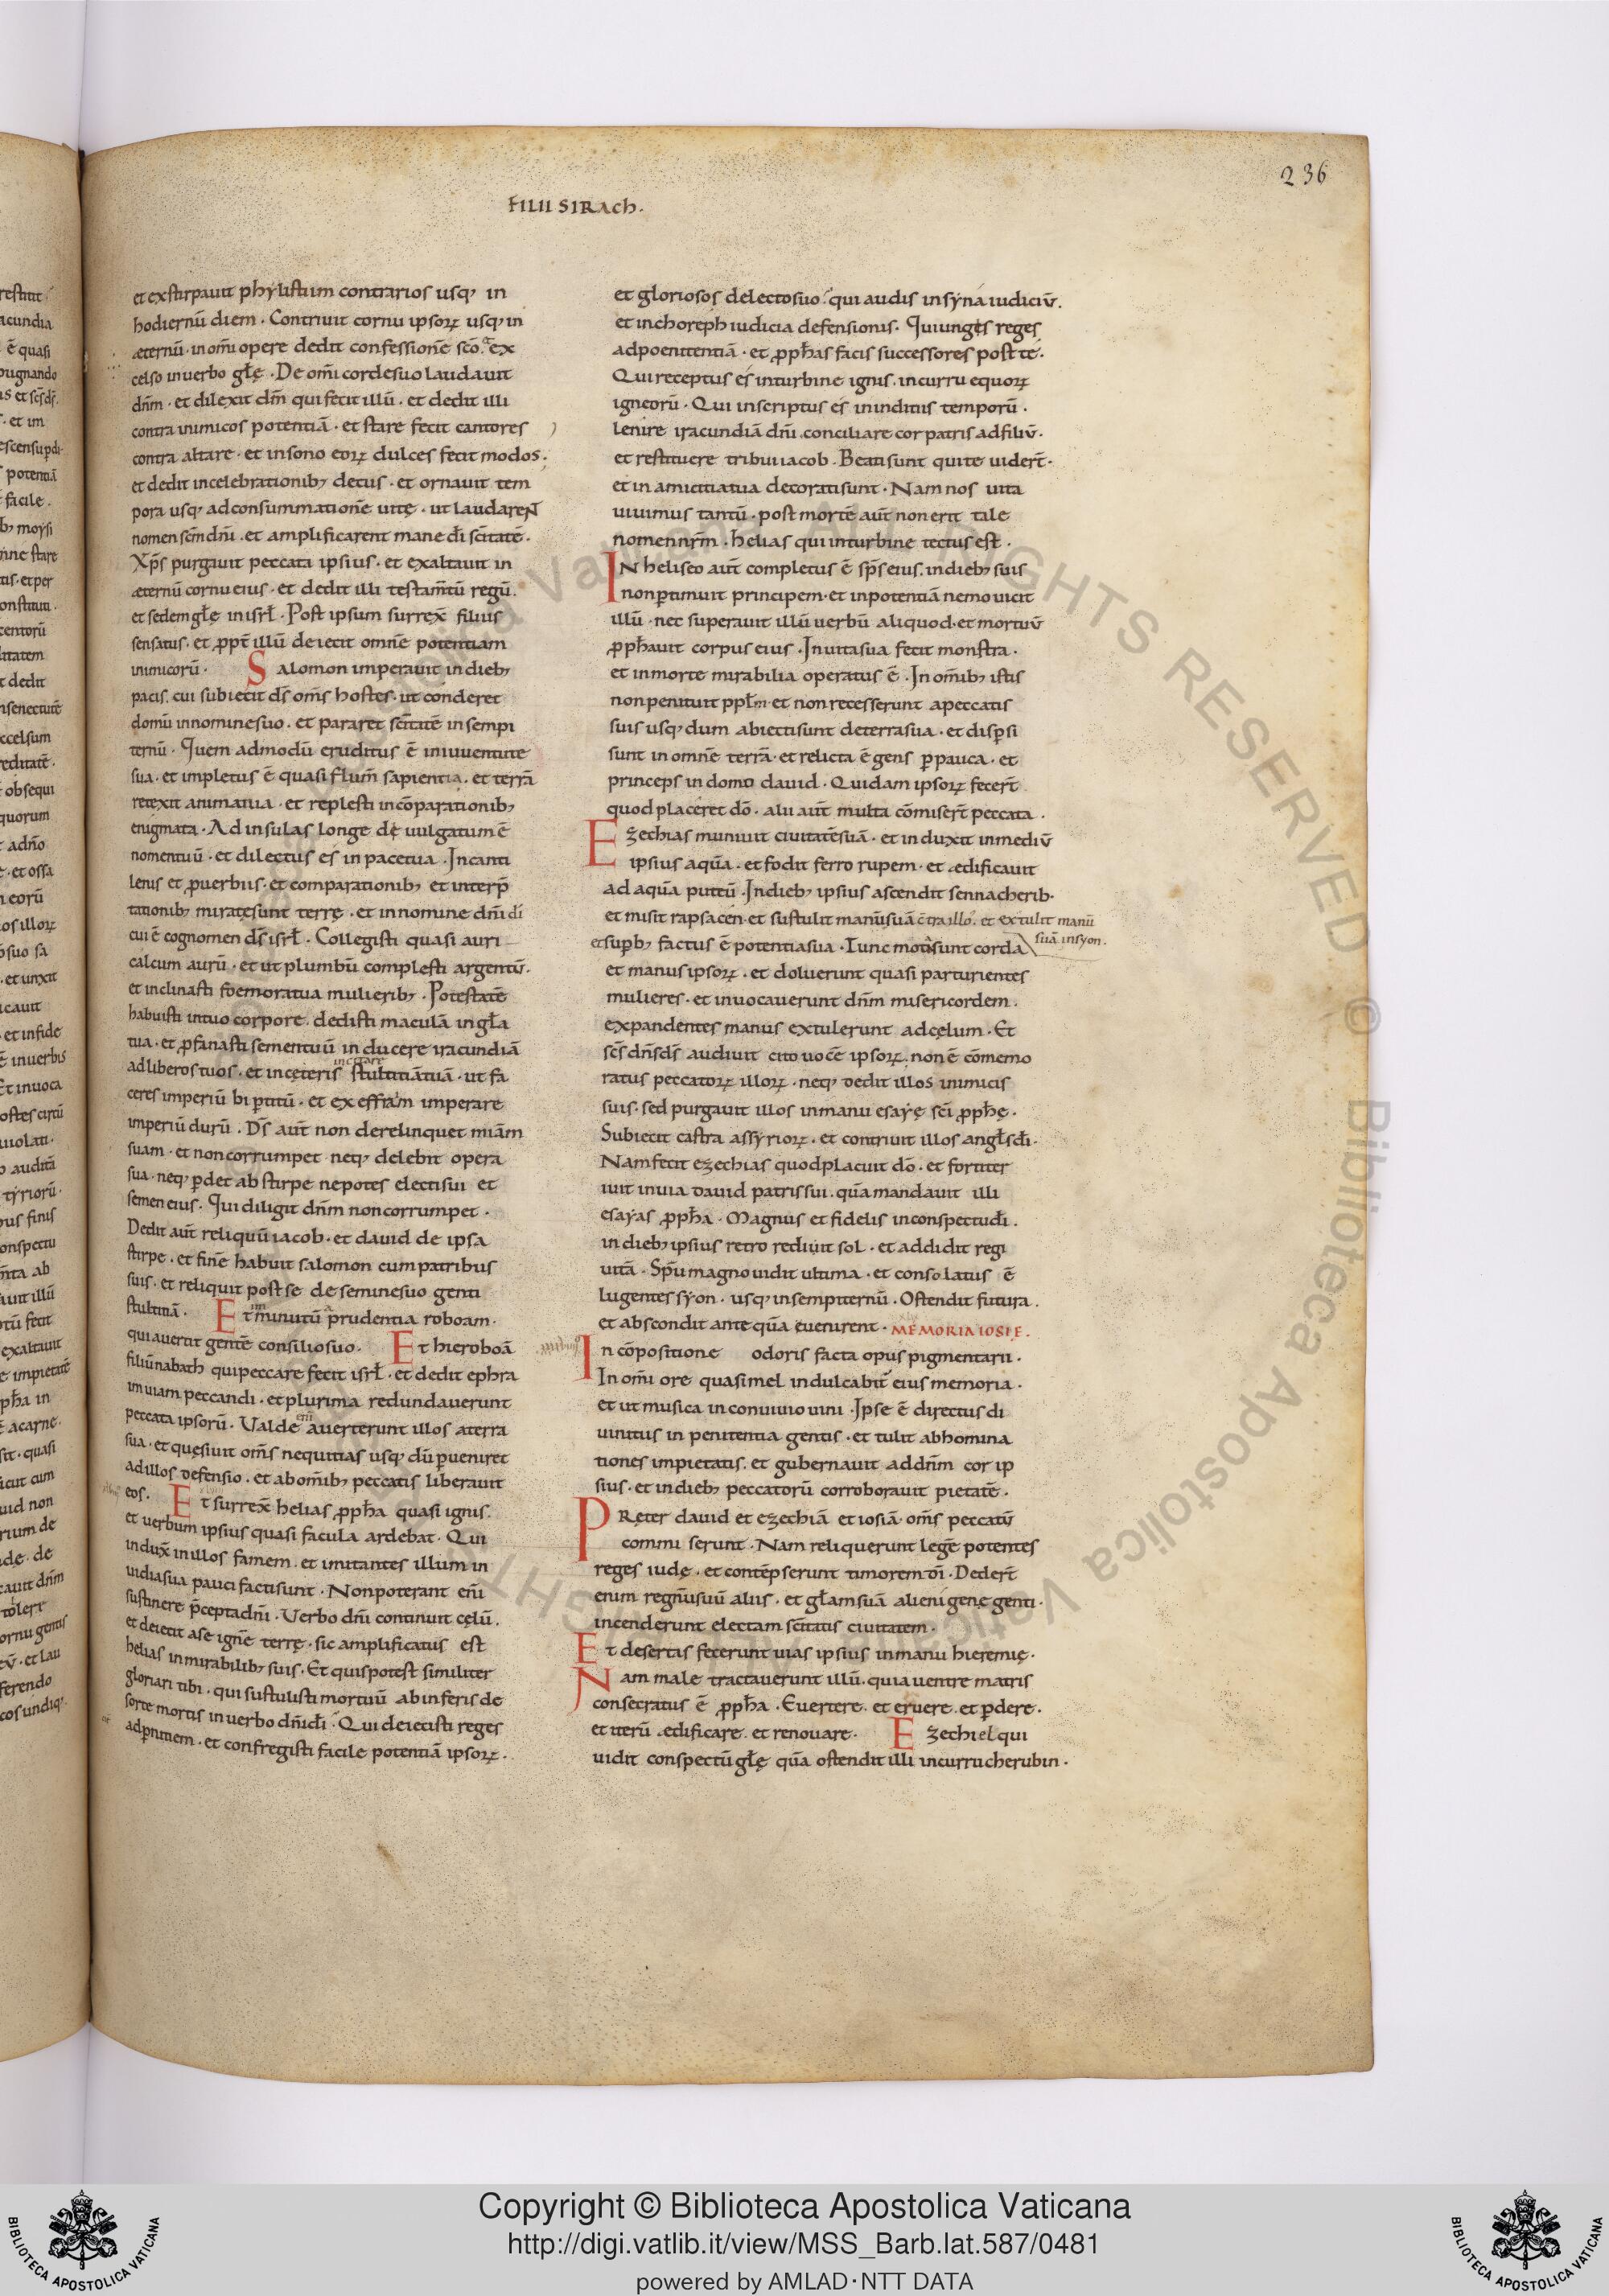 236
FILII SIRACh.
et exstirpauit phylistiim contrarios usq; in
hodiernū diem. Contriuit cornu ipsoꝝ usq; in
æternū. in om̄i opere dedit confessionē sc̄o. ex
celso in uerbo gl̄ę. De om̄i corde suo laudauit
dn̄m. et dilexit dm̄ qui fecit illū. et dedit illi
contra inimicos potentiā. et stare fecit cantores
contra altare. et in sono eoꝝ dulces fecit modos.
et dedit in celebrationib; decus. et ornauit tem
pora usq; ad consummationē uitę. ut laudareN
nomen sc̄m dn̄i. et amplificarent mane dī sc̄itatē.
Xp̄s purgauit peccata ipsius. et exaltauit in
æternū cornu eius. et dedit illi testam̄tū regū.
et sedem gl̄ę in isrl̄. Post ipsum surrex̄ filius
sensatus. et ꝓpt̄ illū deiecit omnē potentiam
inimicorū. Salomon imperauit in dieb;
pacis. cui subiecit ds̄ om̄s hostes. ut conderet
domū in nomine suo. et pararet sc̄itatē in sempi
ternū. Quem admodū eruditus ē in iuuentute
sua. et impletus ē quasi flum̄ sapientia. et terrā
retexit anima tua. et replesti in cōparationib;
enigmata. Ad insulas longe deuulgatum ē
nomen tuū. et dilectus es in pace tua. In canti
lenis et ꝓuerbiis. et comparationib; et interp̄
tationib; miratę sunt terrę. et in nomine dn̄i di
cui ē cognomen ds̄ isrl̄. Collegisti quasi auri
calcum aurū. et ut plumbū complesti argentū.
et inclinasti foemora tua mulierib;. Potestatē
habuisti in tuo corpore. dedisti maculā in gl̄a
tua. et ꝓfanasti semen tuū inducere iracundiā
ad liberos tuos. et in cęteris stultitiā tuā. ut fa
ceres imperiū bipertitū. et ex effraim imperare
imperiū durū. Ds̄ aut̄ non derelinquet mīam
suam. et non corrumpet neq; delebit opera
sua. neq; ꝑdet ab stirpe nepotes electi sui et
semen eius. Qui diligit dn̄m non corrumpet.
Dedit aut̄ reliquū iacob. et dauid de ipsa
stirpe. et finē habuit salomon cum patribus
suis. et reliquit post se de semine suo genti
stultitiā. Et iminutū a prudentia roboam.
qui auertit gentē consilio suo. Et hieroboā
filiū nabath qui peccare fecit isrl̄. et dedit ephra
im uiam peccandi. et plurima redundauerunt
peccata ipsorū. Valde auerterunt illos a terra
sua. et quęsiuit om̄s nequitias usq; dū ꝑueniret
ad illos defensio. et ab om̄ib; peccatis liberauit
eos. Et surrex̄ helias ꝓph̄a quasi ignis.
et uerbum ipsius quasi facula ardebat. Qui
indux̄ in illos famem. et imitantes illum in
uidia sua pauci facti sunt. Non poterant eni
sustinere p̄cepta dn̄i. Verbo dn̄i continuit cęlū.
et deiecit a se ignē terrę. sic amplificatus est
helias in mirabilib; suis. Et quis potest similiter
gloriari tibi. qui sustulisti mortuū ab inferis de
sorte mortis in uerbo dn̄i dī. Qui deiecisti reges
ad ꝑnitiem. et confregisti facile potentiā ipsoꝝ.
et gloriosos de lecto suo. qui audis in syna iudiciū.
et in choreph iudicia defensionis. Qui ungęs reges
ad poenitentiā. et ꝓph̄as facis successores post te.
Qui receptus es in turbine ignis. in curru equoꝝ
igneorū. Qui inscriptus es in inditiis temporū.
lenire iracundiā dn̄i. conciliare cor patris ad filiū.
et restituere tribui iacob. Beati sunt qui te uidert̄.
et in amicitia tua decorati sunt. Nam nos uita
uiuimus tantū. post mortē aut̄ non erit tale
nomen nr̄m. helias qui in turbine tectus est.
IN heliseo aut̄ completus ē sp̄s eius. in dieb; suis
non ꝑtimuit principem. et in potentiā nemo uicit
illū. nec superauit illū uerbū aliquod. et mortuū
ꝓph̄auit corpus eius. In uita sua fecit monstra.
et in morte mirabilia operatus ē. In om̄ib; istis
non penituit ppl̄m. et non recesserunt a peccatis
suis usq; dum abiecti sunt de terra sua. et disꝑsi
sunt in omnē terrā. et relicta ē gens ꝑpauca. et
princeps in domo dauid. Quidam ipsoꝝ fecert̄
quod placeret dō. alii aut̄ multa cōmisert̄ peccata.
Ezechias muniuit ciuitatē suā. et induxit in mediū
ipsius aquā. et fodit ferro rupem. et ædificauit
ad aquā puteū. In dieb; ipsius ascendit sennacherib.
et misit rapsacen. et sustulit manū suā c̄tra illo. et extulit manū
suā in syon.
et supb; factus ē potentia sua. Tunc mota sunt corda
et manus ipsoꝝ. et doluerunt quasi parturientes
mulieres. et inuocauerunt dn̄m misericordem.
expandentes manus extulerunt ad cęlum. Et
sc̄s dn̄s ds̄ audiuit cito uocē ipsoꝝ. non ē cōmemo
ratus peccatoꝝ illoꝝ. neq; dedit illos inimicis
suis. sed purgauit illos in manu esaye sc̄i ꝓph̄ę.
Subiecit castra assyrioꝝ. et contriuit illos angl̄s dī.
Nam fecit ezechias quod placuit dō. et fortiter
iuit in uia dauid patris sui. quā mandauit illi
esayas ꝓph̄a. Magnus et fidelis in conspectu dī.
in dieb; ipsius retro rediuit sol. et addidit regi
uitā. Sp̄u magno uidit ultima. et consolatus ē
lugentes syon. usq; in sempiternū. Ostendit futura.
et abscondit ante quā euenirent. MEMORIA IOSIE.
In cōpositione odoris facta opus pigmentarii.
In om̄i ore quasi mel indulcabit̄ eius memoria.
et ut musica in conuiuio uini. Ipse ē directus di
uinitus in penitentia gentis. et tulit abhomina
tiones impietatis. et gubernauit ad dn̄m cor ip
sius. et in dieb; peccatorū corroborauit pietatē.
PRęter dauid et ezechiā et iosiā. om̄s peccatū
commiserunt. Nam reliquerunt legē potentes
reges iudę. et contēpserunt timorem dī. Dedert̄
enim regnū suū aliis. et gl̄am suā alienigenę genti.
incenderunt electam sc̄itatis ciuitatem.
Et desertas fecerunt uias ipsius in manu hieremię.
Nam male tractauerunt illū. qui a uentre matris
consecratus ē ꝓph̄a. Euertere. et eruere. et ꝑdere.
et iterū ædificare. et renouare. Ezechiel qui
uidit conspectū gl̄ę quā ostendit illi in curru cherubin.
Copyright © Biblioteca Apostolica Vaticana
http://digi.vatlib.it/view/MSS_Barb.lat.587/0481
powered by AMLAD·NTT DATA